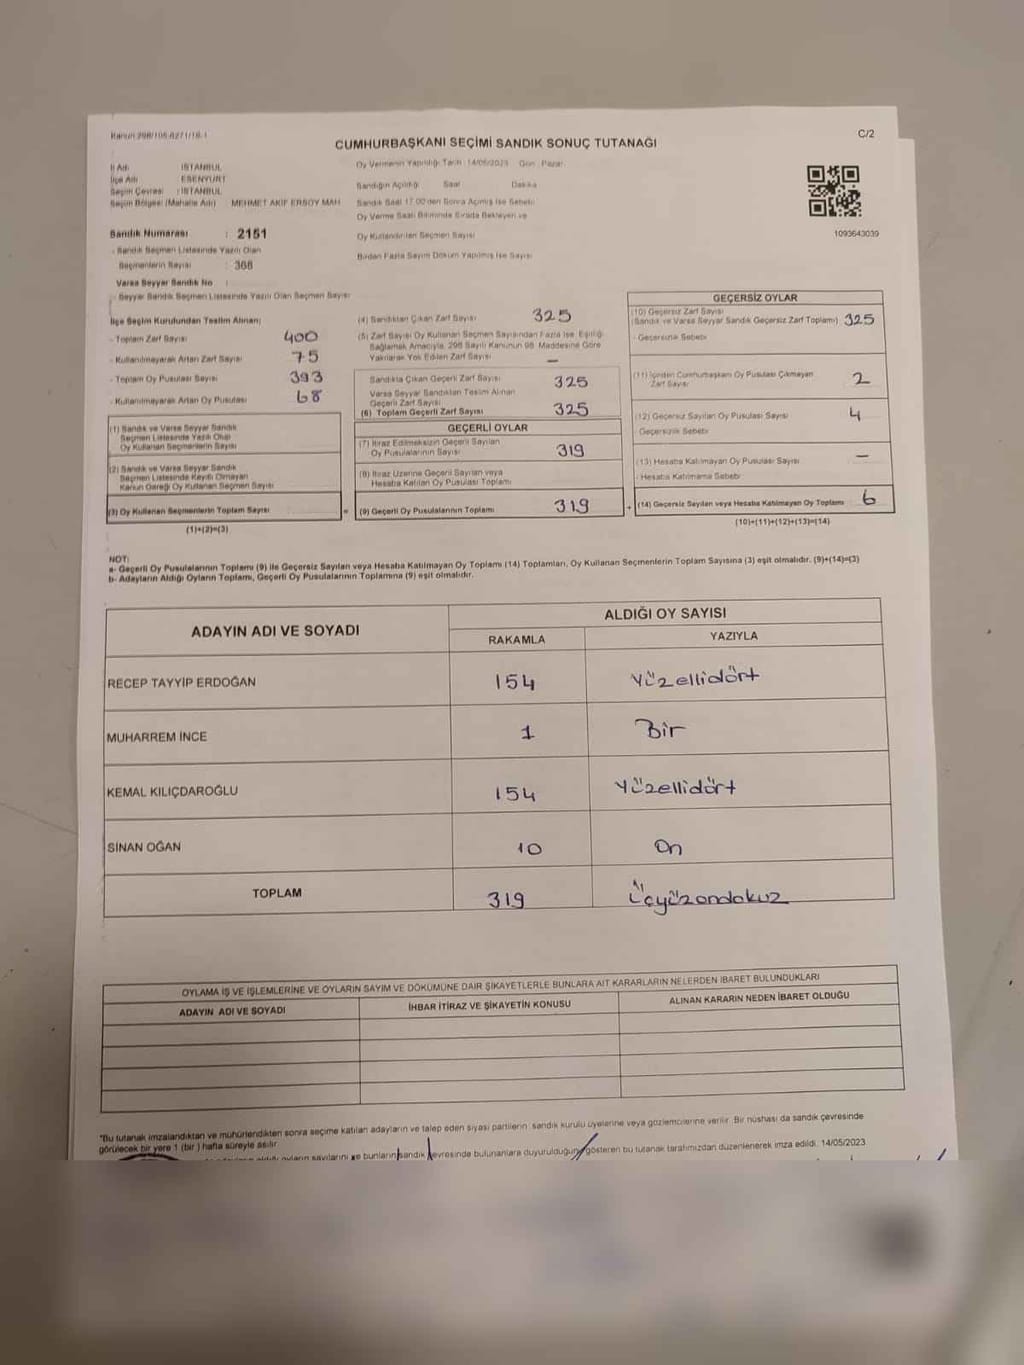 Kanun 298/105-6271/18-1
C/2
CUMHURBAŞKANI SEÇİMİ SANDIK SONUÇ TUTANAĞI
İl Adı : İSTANBUL
İlçe Adı : ESENYURT
Seçim Çevresi : İSTANBUL
Seçim Bölgesi (Mahalle Adı) : MEHMET AKİF ERSOY MAH
Sandık Numarası : 2151
- Sandık Seçmen Listesinde Yazılı Olan
Seçmenlerin Sayısı : 368
Varsa Seyyar Sandık No :
- Seyyar Sandık Seçmen Listesinde Yazılı Olan Seçmen Sayısı
Oy Vermenin Yapıldığı Tarih : 14/05/2023 Gün : Pazar
Sandığın Açıldığı Saat Dakika
Sandık Saat 17.00'den Sonra Açılmış İse Sebebi
Oy Verme Saati Bitiminde Sırada Bekleyen ve
Oy Kullandırılan Seçmen Sayısı
Birden Fazla Sayım Döküm Yapılmış İse Sayısı
1093643039
İlçe Seçim Kurulundan Teslim Alınan;
- Toplam Zarf Sayısı 400
- Kullanılmayarak Artan Zarf Sayısı 75
- Toplam Oy Pusulası Sayısı 393
- Kullanılmayarak Artan Oy Pusulası 68
(1) Sandık ve Varsa Seyyar Sandık
Seçmen Listesinde Yazılı Olup
Oy Kullanan Seçmenlerin Sayısı
(2) Sandık ve Varsa Seyyar Sandık
Seçmen Listesinde Kayıtlı Olmayan
Kanun Gereği Oy Kullanan Seçmen Sayısı
(3) Oy Kullanan Seçmenlerin Toplam Sayısı =
(1)+(2)=(3)
(4) Sandıktan Çıkan Zarf Sayısı 325
(5) Zarf Sayısı Oy Kullanan Seçmen Sayısından Fazla İse, Eşitliği
Sağlamak Amacıyla, 298 Sayılı Kanunun 98. Maddesine Göre
Yakılarak Yok Edilen Zarf Sayısı —
Sandıkta Çıkan Geçerli Zarf Sayısı 325
Varsa Seyyar Sandıktan Teslim Alınan
Geçerli Zarf Sayısı
(6) Toplam Geçerli Zarf Sayısı 325
GEÇERLİ OYLAR
(7) İtiraz Edilmeksizin Geçerli Sayılan
Oy Pusulalarının Sayısı 319
(8) İtiraz Üzerine Geçerli Sayılan veya
Hesaba Katılan Oy Pusulası Toplamı
(9) Geçerli Oy Pusulalarının Toplamı 319 +
GEÇERSİZ OYLAR
(10) Geçersiz Zarf Sayısı
(Sandık ve Varsa Seyyar Sandık Geçersiz Zarf Toplamı) 325
- Geçersizlik Sebebi
(11) İçinden Cumhurbaşkanı Oy Pusulası Çıkmayan
Zarf Sayısı 2
(12) Geçersiz Sayılan Oy Pusulası Sayısı 4
Geçersizlik Sebebi
(13) Hesaba Katılmayan Oy Pusulası Sayısı —
- Hesaba Katılmama Sebebi
(14) Geçersiz Sayılan veya Hesaba Katılmayan Oy Toplamı 6
(10)+(11)+(12)+(13)=(14)
NOT:
a- Geçerli Oy Pusulalarının Toplamı (9) ile Geçersiz Sayılan veya Hesaba Katılmayan Oy Toplamı (14) Toplamları, Oy Kullanan Seçmenlerin Toplam Sayısına (3) eşit olmalıdır. (9)+(14)=(3)
b- Adayların Aldığı Oyların Toplamı, Geçerli Oy Pusulalarının Toplamına (9) eşit olmalıdır.
ADAYIN ADI VE SOYADI ALDIĞI OY SAYISI
RAKAMLA YAZIYLA
RECEP TAYYİP ERDOĞAN 154 Yüzellidört
MUHARREM İNCE 1 Bir
KEMAL KILIÇDAROĞLU 154 Yüzellidört
SİNAN OĞAN 10 On
TOPLAM 319 Üçyüzondokuz
OYLAMA İŞ VE İŞLEMLERİNE VE OYLARIN SAYIM VE DÖKÜMÜNE DAİR ŞİKAYETLERLE BUNLARA AİT KARARLARIN NELERDEN İBARET BULUNDUKLARI
ADAYIN ADI VE SOYADI İHBAR İTİRAZ VE ŞİKAYETİN KONUSU ALINAN KARARIN NEDEN İBARET OLDUĞU
"Bu tutanak imzalandıktan ve mühürlendikten sonra seçime katılan adayların ve talep eden siyasi partilerin sandık kurulu üyelerine veya gözlemcilerine verilir. Bir nüshası da sandık çevresinde
görülecek bir yere 1 (bir) hafta süreyle asılır.
aldığı oyların sayılarını ve bunların sandık çevresinde bulunanlara duyurulduğunu gösteren bu tutanak tarafımızdan düzenlenerek imza edildi. 14/05/2023